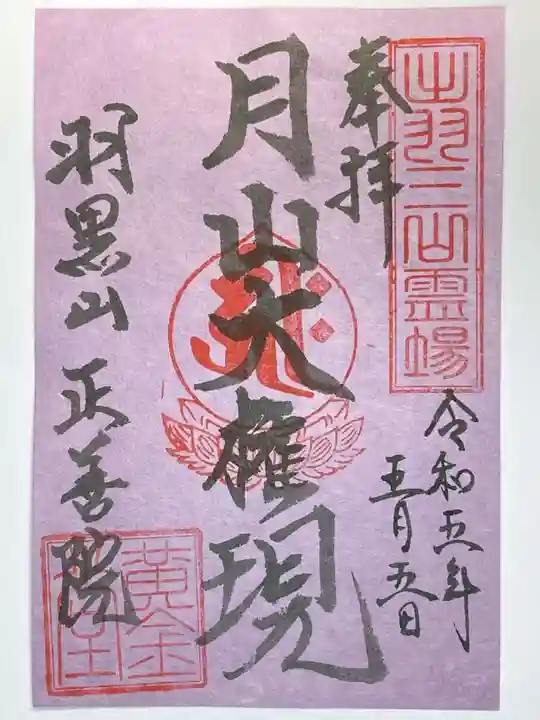 出羽三山霊場
奉拝
令和五年
五月五日
月山大権現
羽黒山 正善院
黄金堂